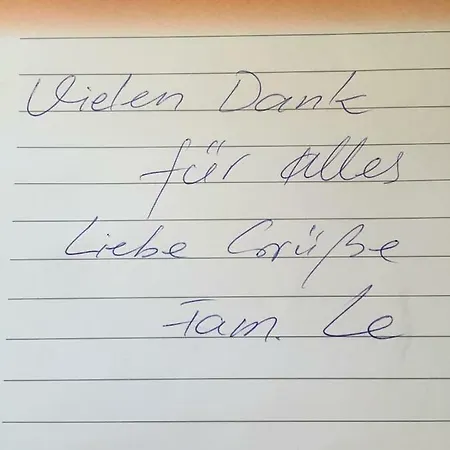 Vielen Dank
für alles
Liebe Grüße
Fam. Le